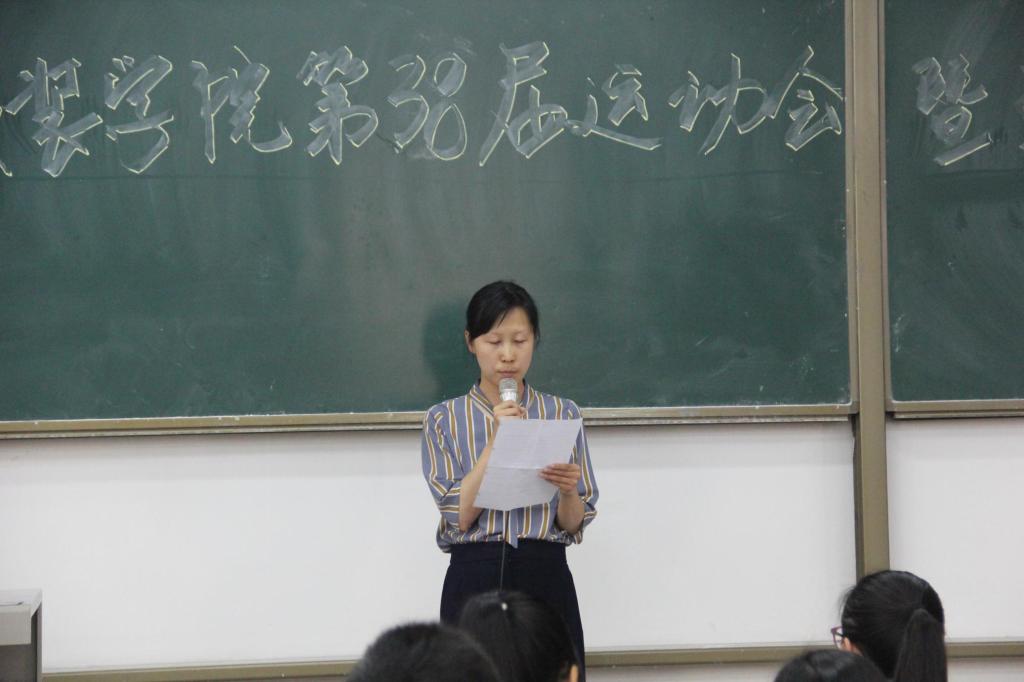 裳学院第38届运动会暨